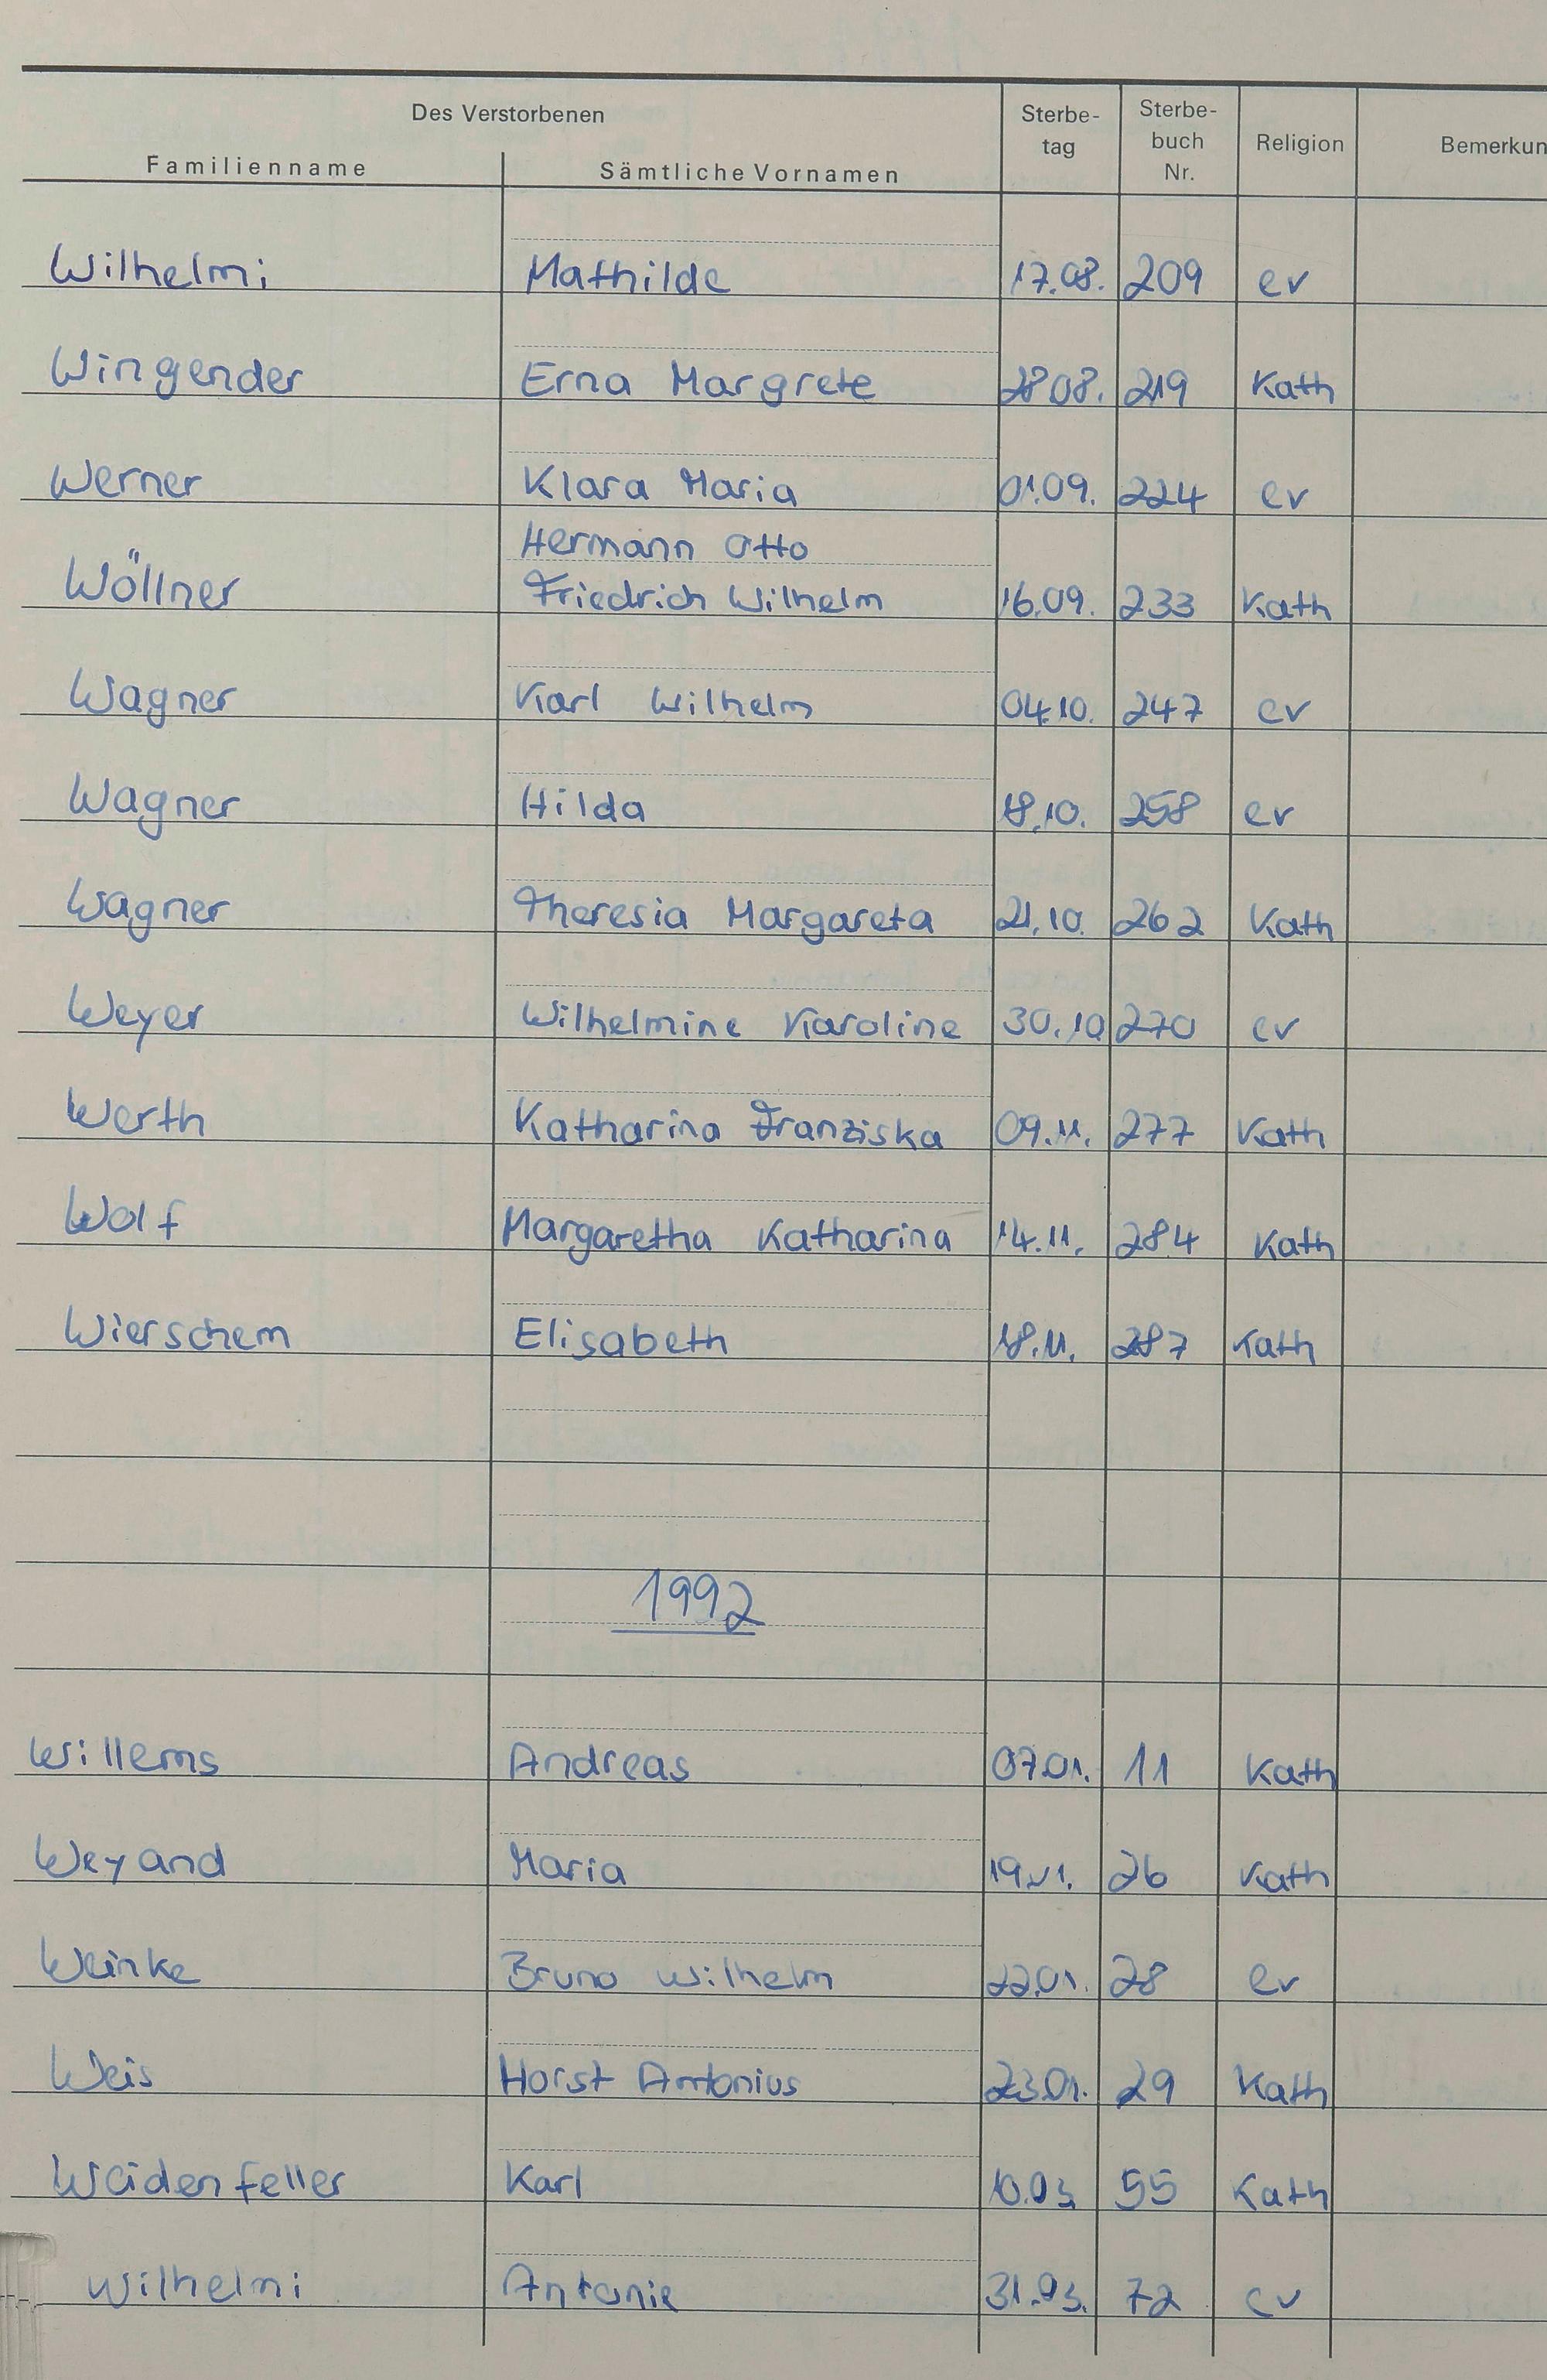 Des Verstorbenen
Familienname Sämtliche Vornamen Sterbe-tag Sterbe-buch Nr. Religion Bemerkun
Wilhelmi Mathilde 17.08. 209 ev
Wingender Erna Margrete 28.08. 219 Kath
Werner Klara Maria 01.09. 224 ev
Hermann Otto
Wöllner Friedrich Wilhelm 16.09. 233 Kath
Wagner Karl Wilhelm 04.10. 247 ev
Wagner Hilda 18.10. 258 ev
Wagner Theresia Margareta 21.10. 262 Kath
Weyer Wilhelmine Karoline 30.10 270 ev
Werth Katharina Franziska 09.11. 277 Kath
Wolf Margaretha Katharina 14.11. 284 Kath
Wierschem Elisabeth 18.11. 287 Kath
1992
Willems Andreas 07.01. 11 Kath
Weyand Maria 19.01. 26 Kath
Weinke Bruno Wilhelm 22.01. 28 ev
Weis Horst Antonius 23.01. 29 Kath
Weidenfeller Karl 10.03. 55 Kath
Wilhelmi Antonie 31.03. 72 ev